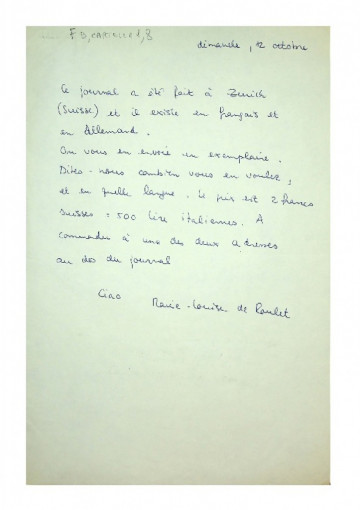 F D, CART. 1, 8
dimanche, 12 octobre
Ce journal a été fait à Zurich
(Suisse) et il existe en français et
en Allemand.
On vous en envoie un exemplaire.
Dites-nous combien vous en voulez,
et en quelle langue. Le prix est 2 francs
suisses = 500 lire italiennes. A
commander à une des deux adresses
au dos du journal
Ciao
Marie-Louise de